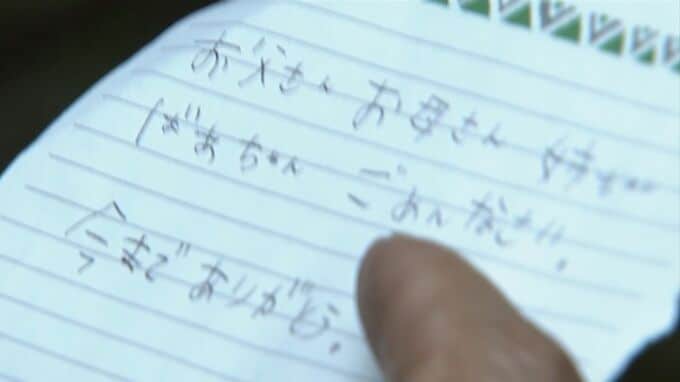 お父さん お母さん 姉ちゃん
ばあちゃん ごめんなさい。
今まで ありがとう。